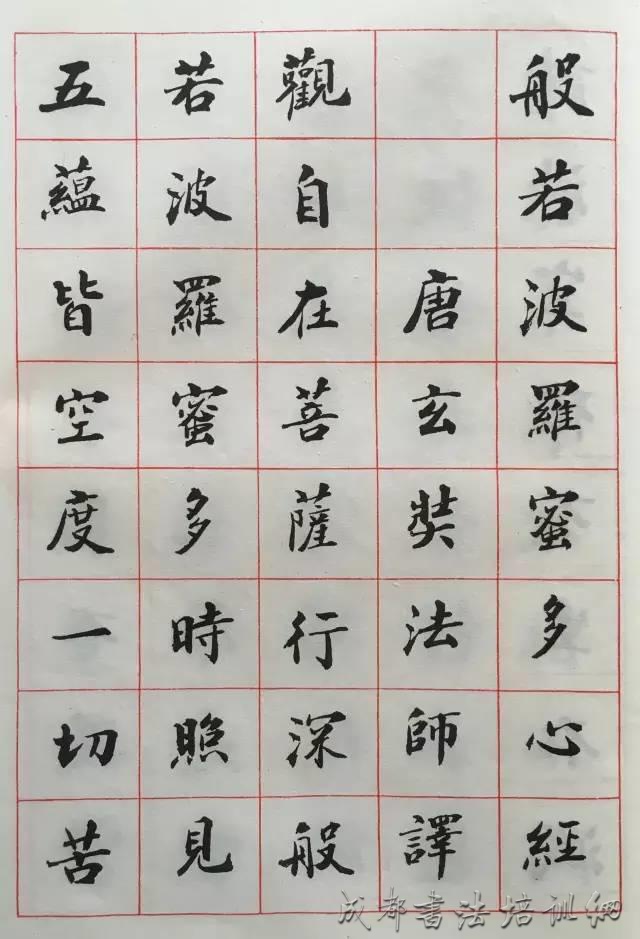 般若波羅蜜多心經
唐玄奘法師譯
觀自在菩薩行深般
若波羅蜜多時照見
五蘊皆空度一切苦
成都书法培训网